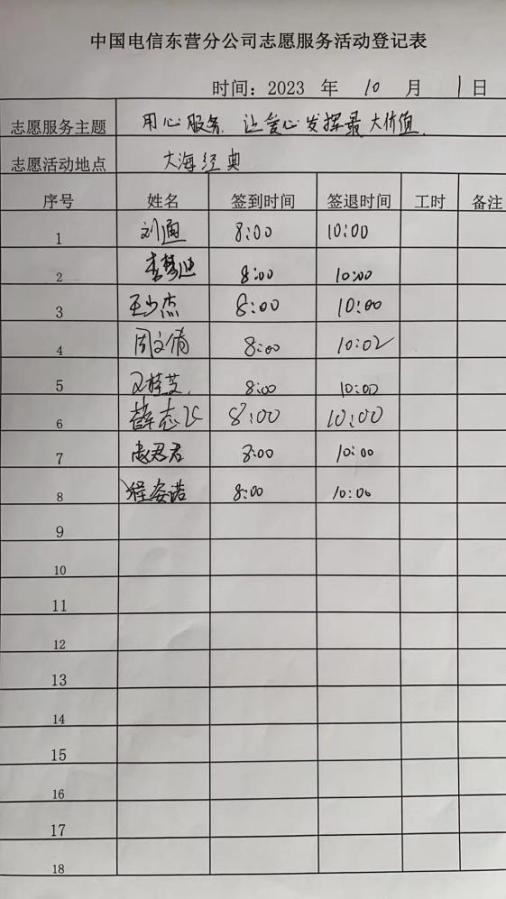 中国电信东营分公司志愿服务活动登记表
时间：2023 年 10 月 1 日
志愿服务主题 用心服务，让爱心发挥最大价值。
志愿活动地点 大海经典
序号 姓名 签到时间 签退时间 工时 备注
1 刘通 8:00 10:00
2 李梦迪 8:00 10:00
3 王少杰 8:00 10:00
4 周文倩 8:00 10:02
5 桂芝 8:00 10:00
6 薛志 8:00 10:00
7 君君 8:00 10:00
8 程姿诺 8:00 10:00
9
10
11
12
13
14
15
16
17
18